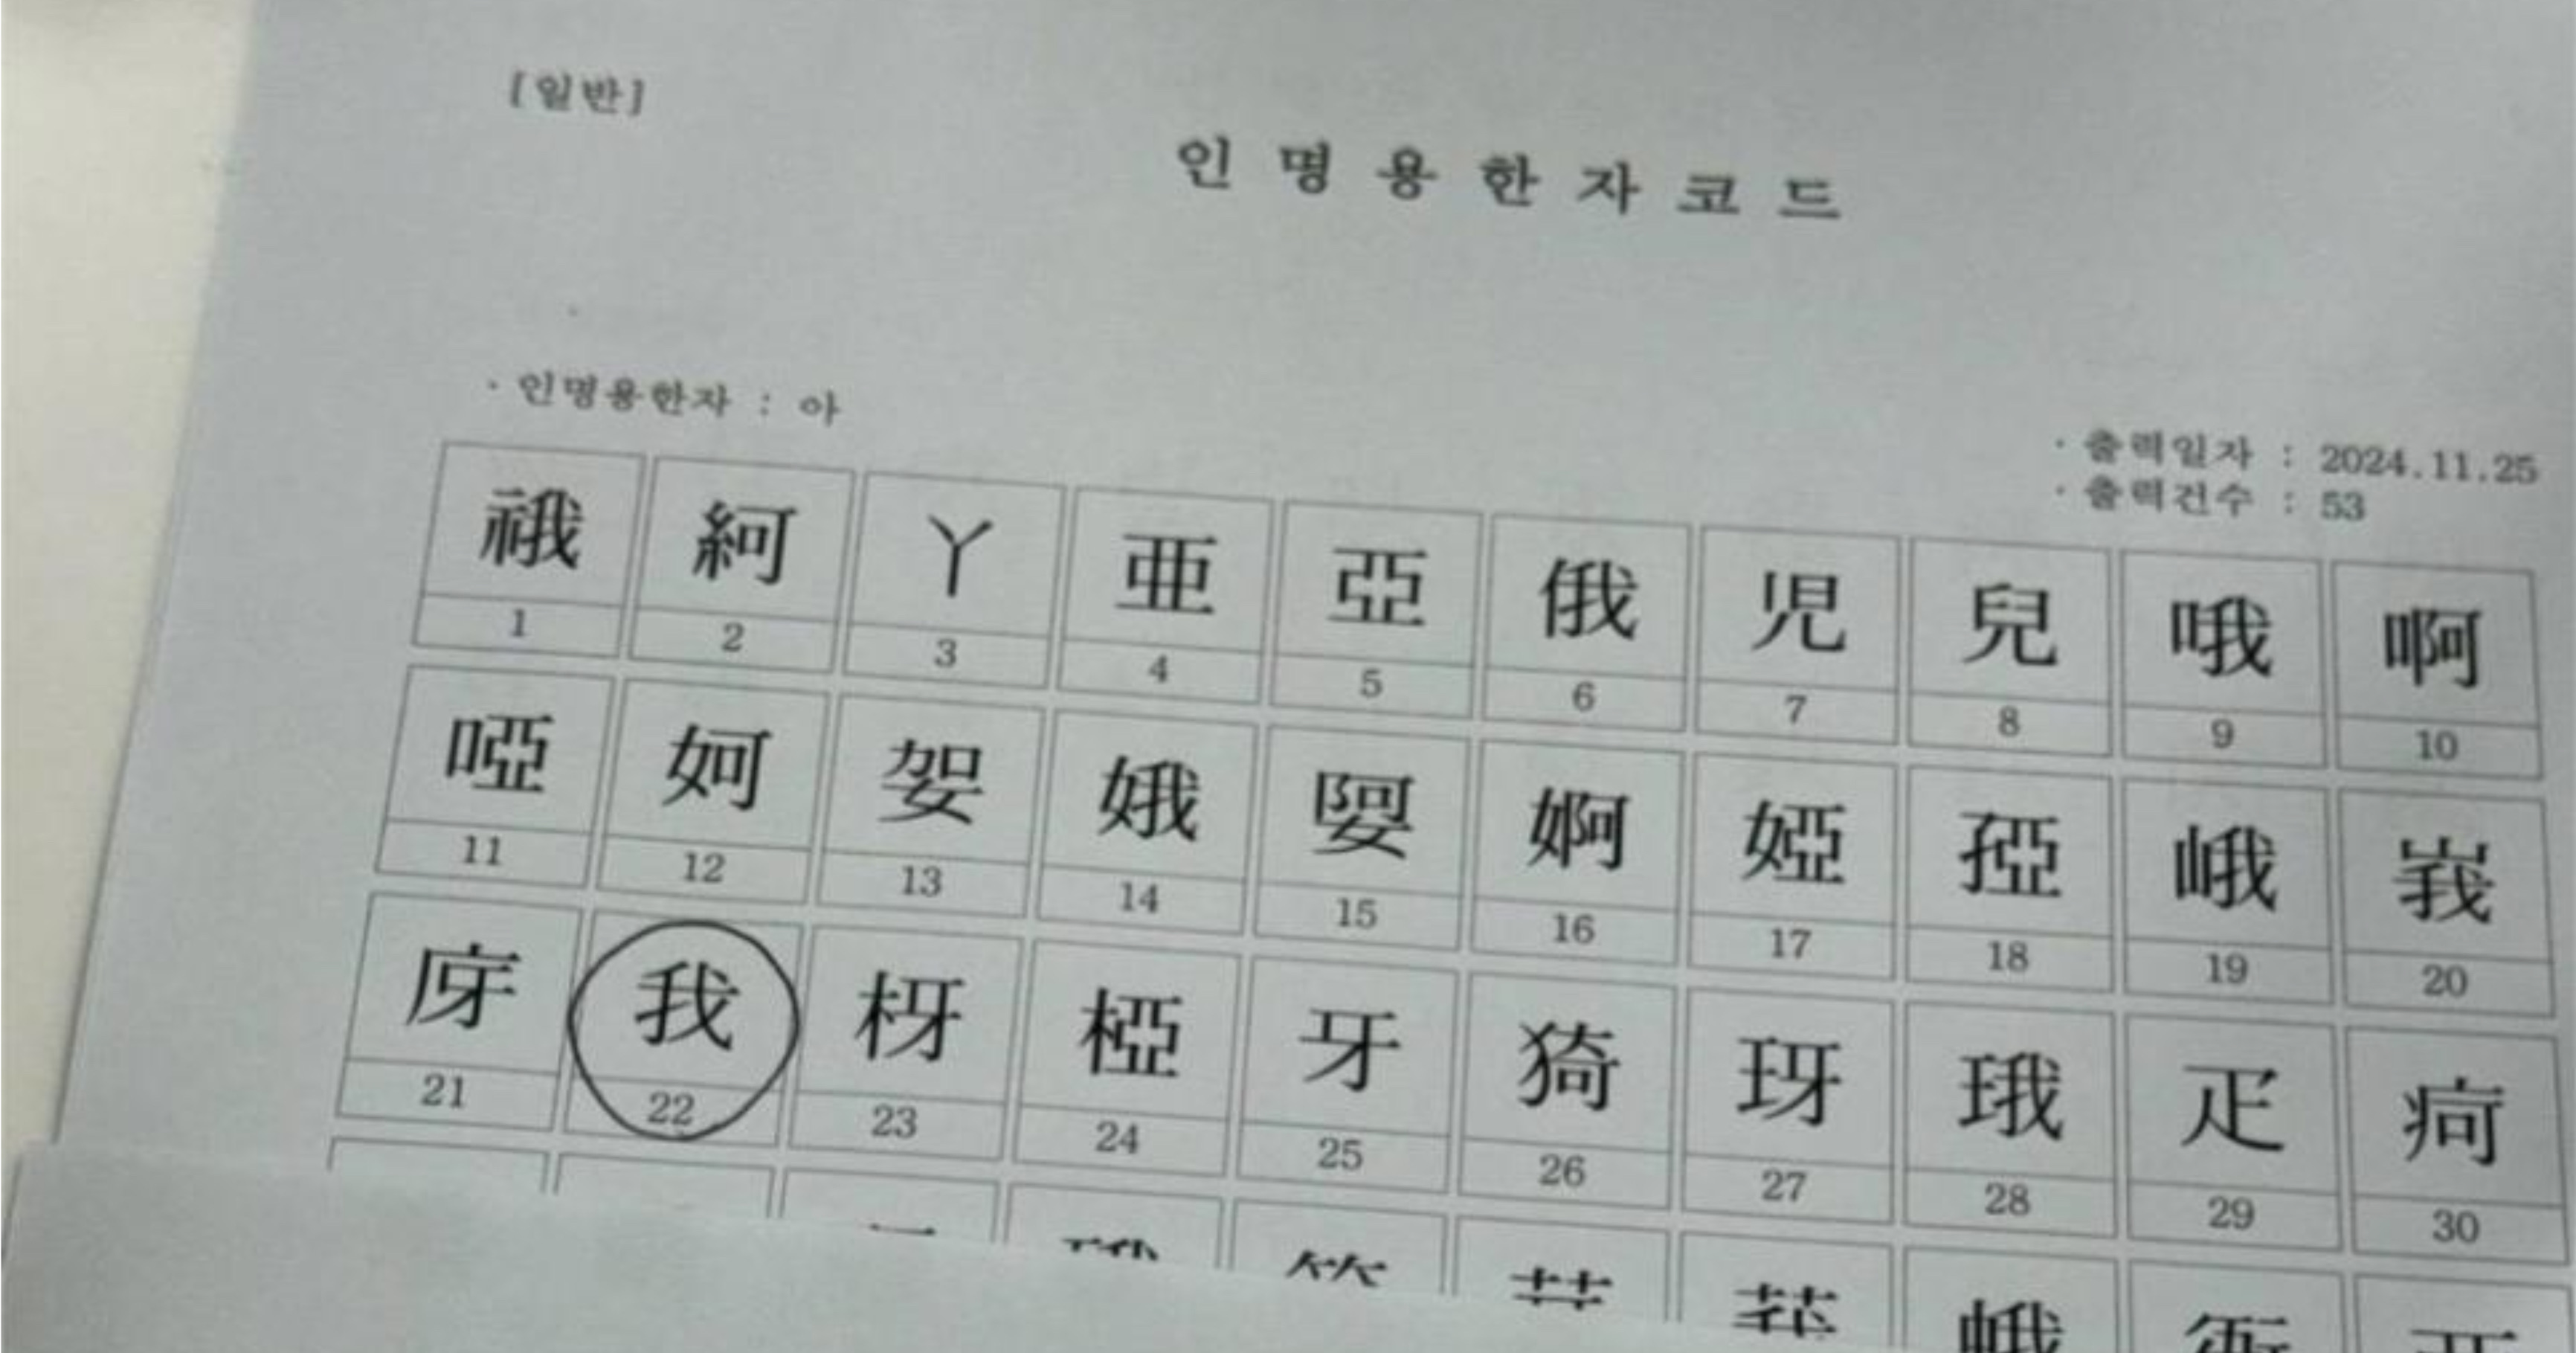 [일반]
인명용한자코드
· 인명용한자 : 아
· 출력일자 : 2024.11.25
· 출력건수 : 53
䄉 絅 丫 亜 亞 俄 児 兒 哦 啊
1 2 3 4 5 6 7 8 9 10
啞 妸 娿 娥 婴 婀 婭 孲 峨 峩
11 12 13 14 15 16 17 18 19 20
庌 我 枒 椏 牙 猗 玡 珴 疋 疴
21 22 23 24 25 26 27 28 29 30